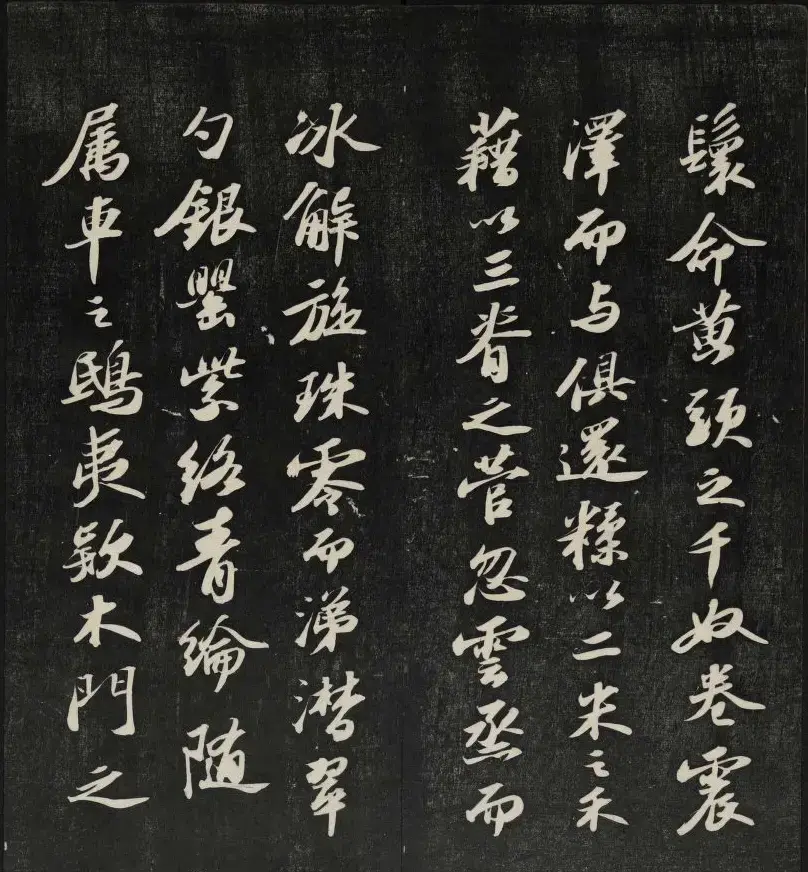 鬟命黄頭之千奴卷震
澤而与俱還糅以二米之禾
藉以三脊之菅忽雲烝而
冰解旋珠零而涕潸翠
勺銀罌紫絡青綸随
属車之鴟夷欵木門之